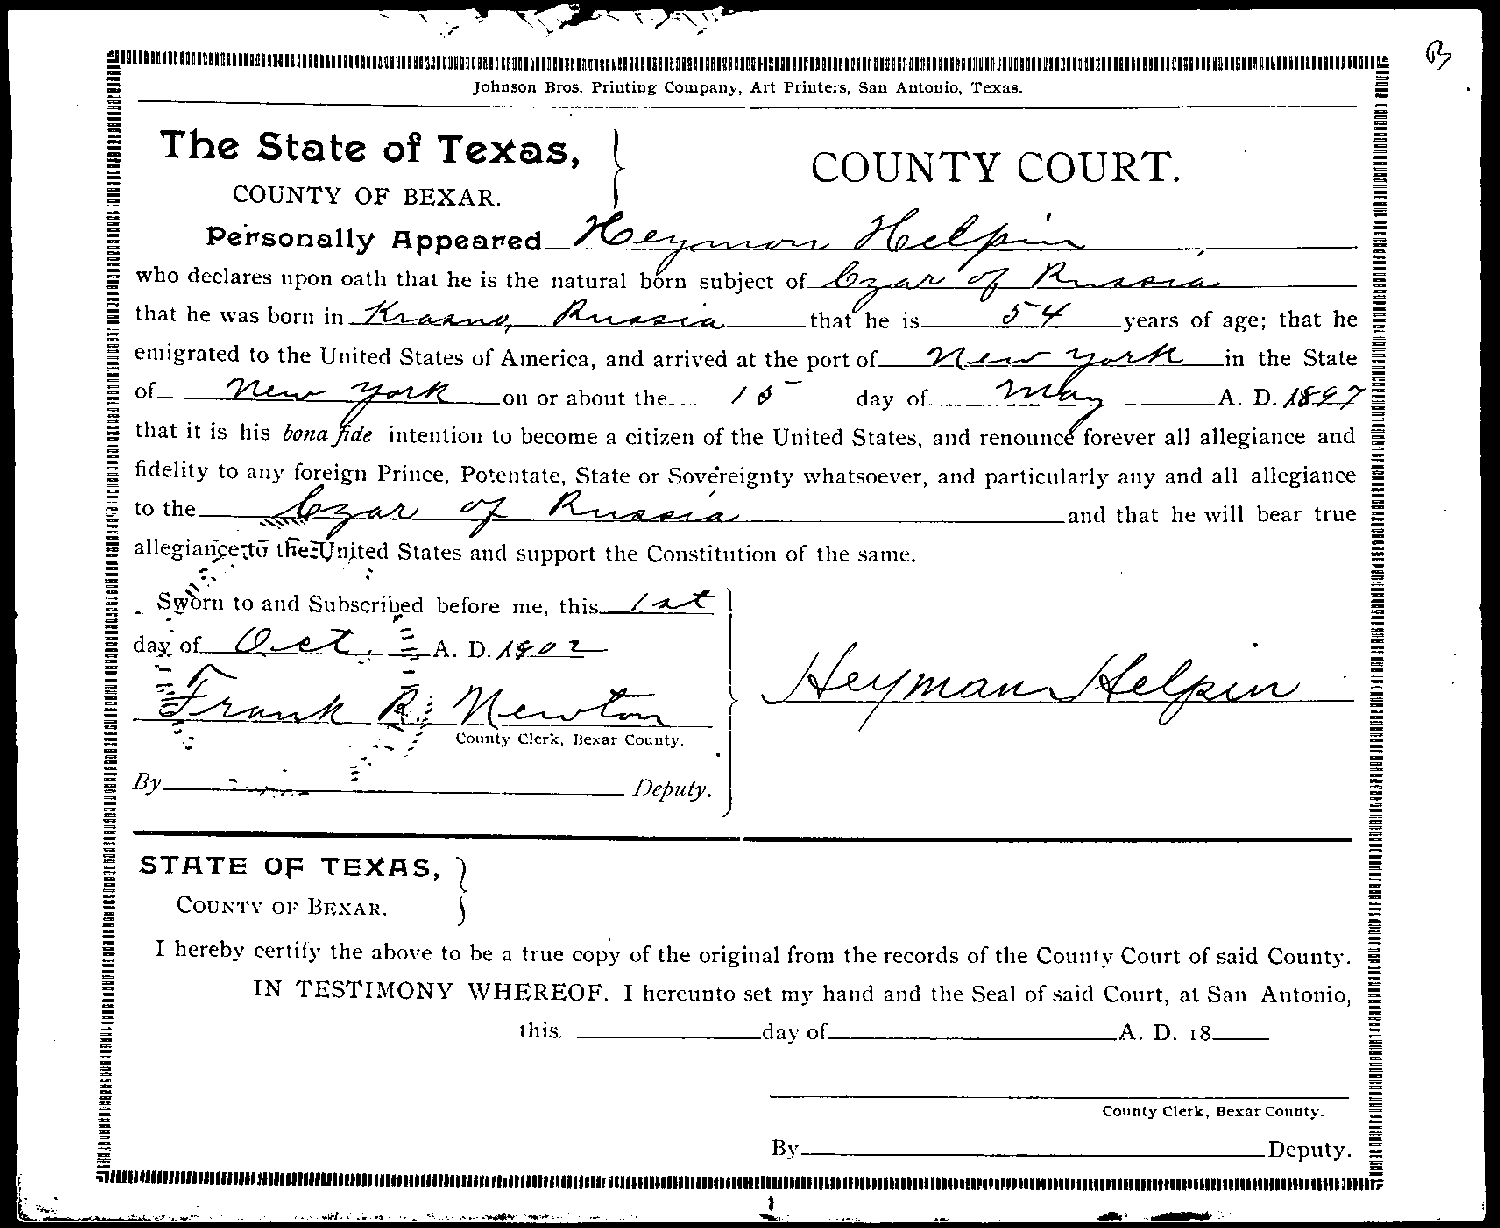 B
Johnson Bros. Printing Company, Art Printers, San Antonio, Texas.
The State of Texas,
COUNTY OF BEXAR.
COUNTY COURT.
Personally Appeared Heyman Helpin
who declares upon oath that he is the natural born subject of Czar of Russia
that he was born in Krasno, Russia that he is 54 years of age; that he
emigrated to the United States of America, and arrived at the port of New York in the State
of New York on or about the 15 day of May A. D. 1897
that it is his bona fide intention to become a citizen of the United States, and renounce forever all allegiance and
fidelity to any foreign Prince, Potentate, State or Sovereignty whatsoever, and particularly any and all allegiance
to the Czar of Russia and that he will bear true
allegiance to the United States and support the Constitution of the same.
Sworn to and Subscribed before me, this 1st
day of Oct. A. D. 1902
Frank R. Newton
County Clerk, Bexar County.
By Deputy.
Heyman Helpin
STATE OF TEXAS,
COUNTY OF BEXAR.
I hereby certify the above to be a true copy of the original from the records of the County Court of said County.
IN TESTIMONY WHEREOF. I hereunto set my hand and the Seal of said Court, at San Antonio,
this day of A. D. 18
County Clerk, Bexar County.
By Deputy.